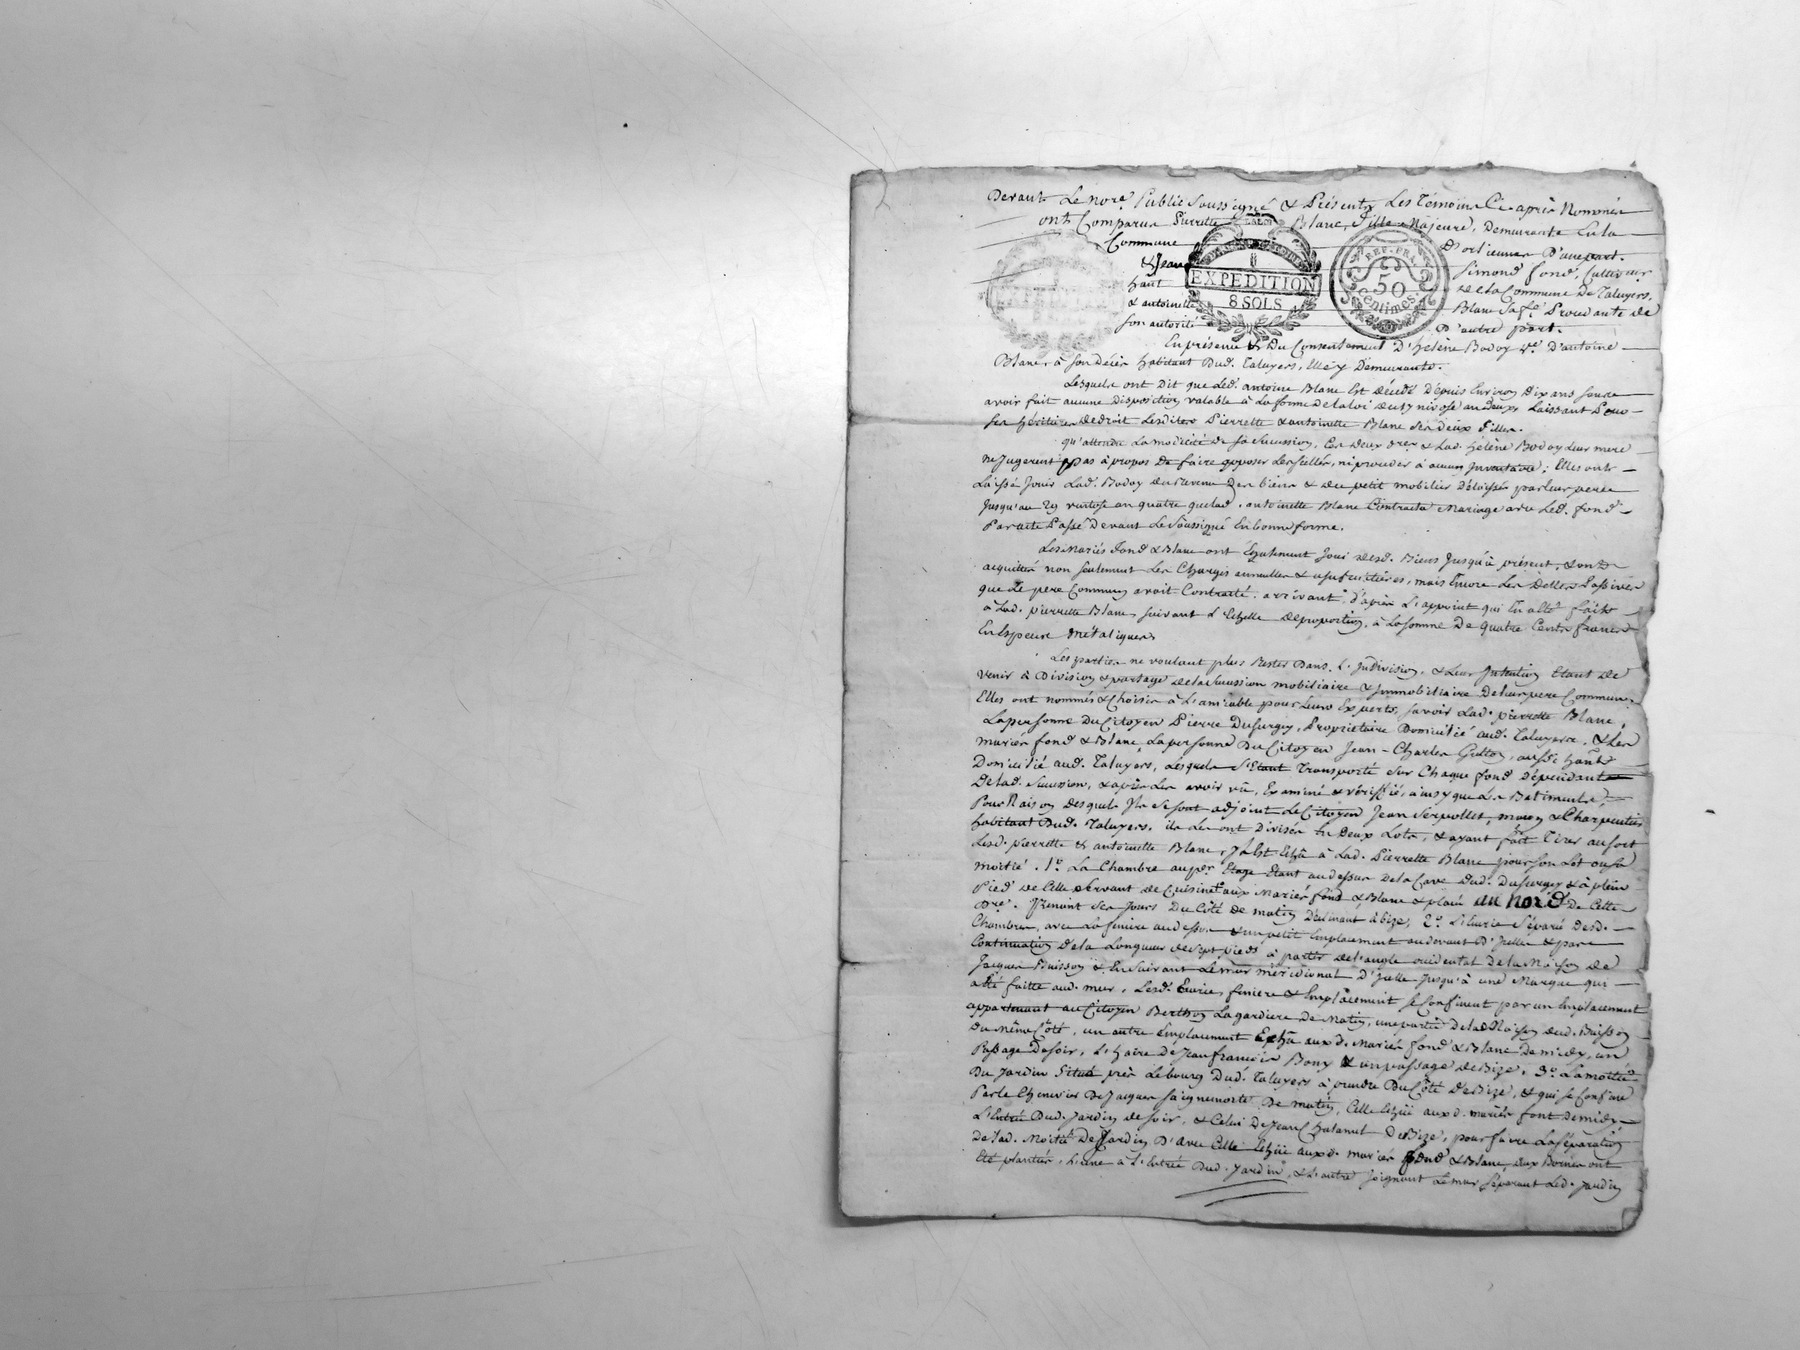 Devant Le Nore Public Soussigné & Présents Les Témoins Ci-après Nommés
ont Comparus Pierrette Blanc, Fille Majeure, Demeurante En la
Commune D'orlienas D'une part.
& Jean Simond fond, Cultivateur
habt de la Commune De Taluyers,
& antoinette Blanc Sa fe Procédante de
son autorité D'autre part.
LA LOI
EXPEDITION
8 SOLS
REP. FRA.
50
Centimes.
En présence & Du Consentement D'helène Bodoy Ve D'antoine
Blanc, à Son Décès habitant Dud. Taluyers, Elle y Demeurante.
Lesquels ont Dit que Led. antoine Blanc Est Décédé Depuis Environ Dix ans sans
avoir fait aucune Disposition valable à La forme De la loi Du 17 nivose an Deux, Laissant Pour
ses héritières De droit Lesdites Pierrette & antoinette Blanc Ses Deux filles.
qu'attendu La modicité De Sa Succession, Ces Deux & Lad. hélène Bodoy Leur mere
ne Jugerent pas à propos De faire apposer Les scellés, ni procéder à aucun Inventaire; Elles ont
Laissé Jouir Lad. Bodoy Du revenu Des biens & Du petit mobilier Délaissés par Leur pere
Jusqu'au 29 ventose an quatre que Lad. antoinette Blanc Contracta Mariage avec Led. fond
Par acte Passé Devant Le Soussigné En bonne forme.
Les Mariés Fond & Blanc ont Egalement Joui Desd. Biens Jusqu'à présent, & ont
acquittés non seulement Les Charges annuelles & usufruitières, mais Encore Les Dettes Passives
que Le pere Commun avoit Contracté arrivant D'après L'appoint qui En a été faite
à Lad. pierrette Blanc, suivant L'Echelle De proportion, à La somme De quatre Cents francs
En Espece Métalliques.
Les parties ne voulant plus Rester Dans L'Indivision, & Leur Intention Etant De
venir à Division & partage De la Succession mobiliaire & Immobiliaire De Leur pere Commun,
Elles ont nommés & Choisis à L'amiable pour Leurs Experts, savoir Lad. pierrette Blanc,
La personne Du Citoyen Pierre Dusurgey, Propriétaire Domicilié aud. Taluyers, & Les
mariés fond & Blanc, La personne Du Citoyen Jean-Charles aussi
Domicilié aud. Taluyers, Lesquels S'Etant Transporté sur Chaque fond Dépendant
De Lad. Succession, & après Les avoir vû, Examiné & vérifié, ainsy que Les Batiments,
Pour Raison Desquels Ils se sont adjoint Le Citoyen Jean Serpollet, maçon & Charpentier
habitant Dud. Taluyers, ils Les ont Divisés En Deux Lots, & ayant fait Tirer au sort
Lesd. pierrette & antoinette Blanc, Il Est Echû à Lad. Pierrette Blanc pour son Lot ou sa
Moitié. 1o La Chambre au per Etage Etant au Dessus De la Cave Dud. Dusurgey & à plein
Pied De Celle Servant De Cuisine aux Mariés fond & Blanc & placée au nord De Cette
Dre. Prenant ses Jours Du Côté De matin Déclinant à bize, 2o L'Ecurie Séparée Desd.
Chambres, avec La feniere au Dessus & un petit Emplacement au Devant D'Icelle & par
Continuation De la Longueur De sept pieds à partir De L'angle occidental De la Maison De
Jacques Buisson & En Suivant Le mur méridional D'Icelle Jusqu'à une Marque qui
a Eté faitte aud. mur, Lesd. Ecurie, feniere & Emplacement se Confinent par un Emplacement
appartenant au Citoyen Berthon Lagardiere De Matin, une partie De la Maison Dud. Buisson
Du Même Côté, un autre Emplacement Echû auxd. Mariés fond & Blanc De midy, un
Passage De soir, L'haire De Jean francois Bony & un passage De Bize. 3o La moitié
Du Jardin Situé près Le bourg Dud. Taluyers à prendre Du Côté De Bize, & qui se Confine
Par le Chenevier De Jacques De matin, Celle Echüe auxd. mariés font De midy
L'Entrée Dud. Jardin De soir, & Celui De Jean Chatanut De Bize, pour faire La séparation
De Lad. Moitié De Jardin D'avec Celle Echüe auxd. mariés fond & Blanc, Deux Bornes ont
Eté plantées, L'une à L'Entrée Dud. Jardin, & L'autre Joignant Le mur séparant Led. Jardin